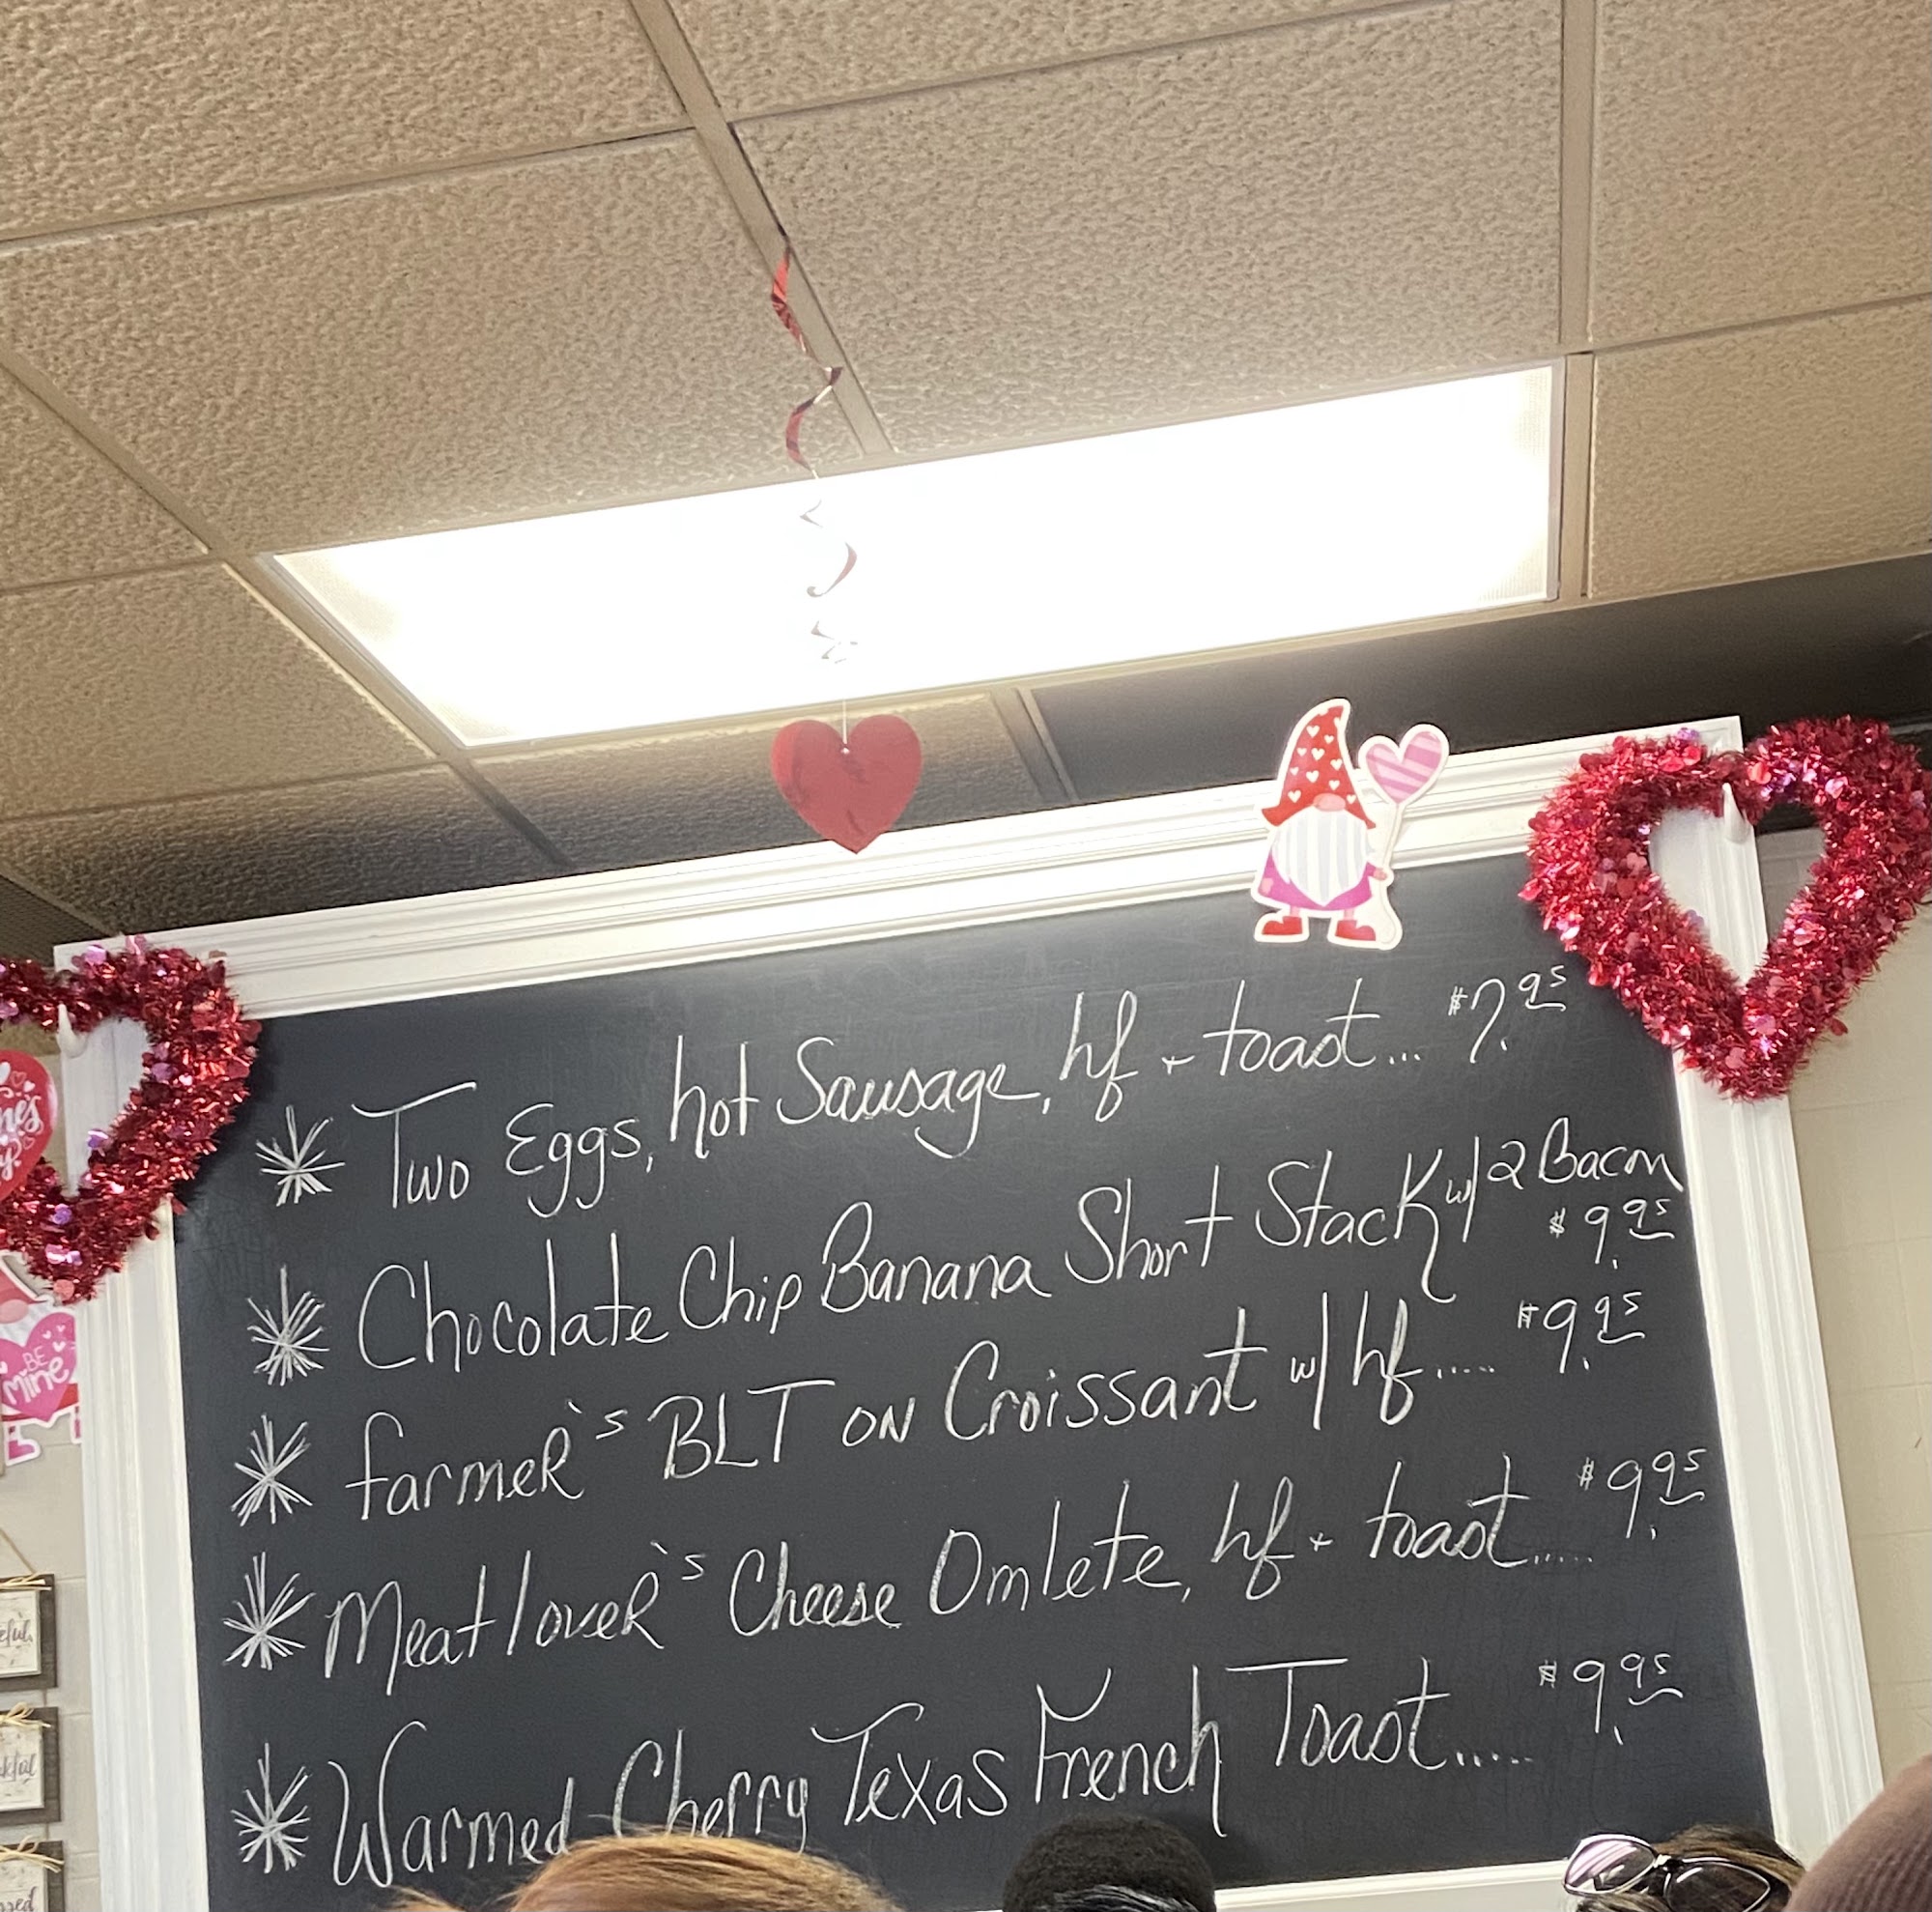 * Two Eggs, hot Sausage, hf + toast... $7.95
* Chocolate Chip Banana Short Stack w/ 2 Bacon
$9.95
* farmer's BLT on Croissant w/ hf..... $9.95
* Meatlover's Cheese Omlete, hf + toast..... $9.95
* Warmed Cherry Texas French Toast..... $9.95
BE
Mine